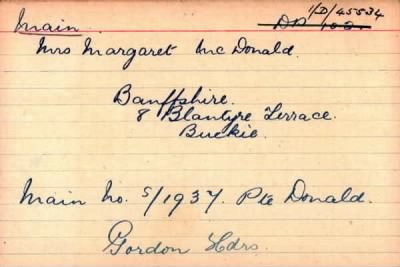 1/D/45534
Main.
DP 102.
Mrs Margaret McDonald.
Banffshire.
8 Blantyre Terrace.
Buckie.
Main No. S/1937. Pte Donald.
Gordon Hdrs.